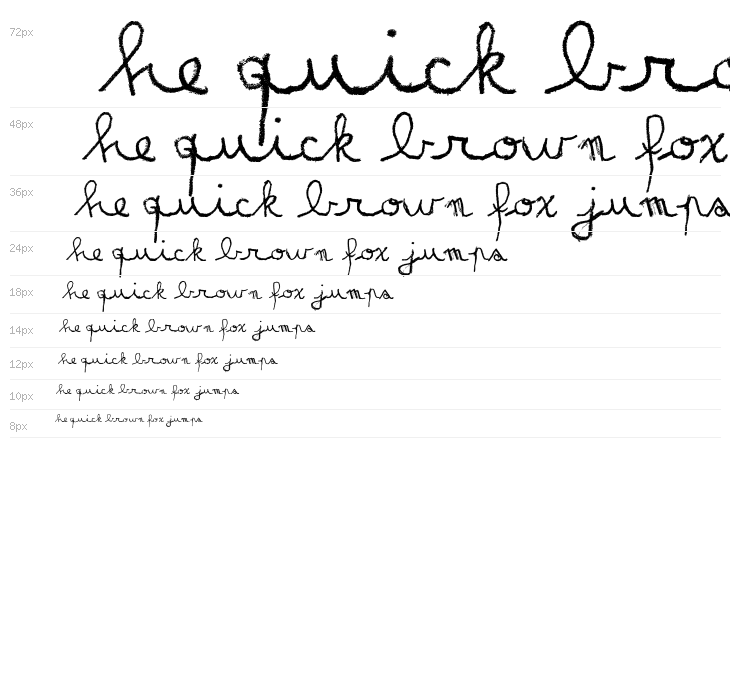 72px he quick bro
48px he quick brown fox
36px he quick brown fox jumps
24px he quick brown fox jumps
18px he quick brown fox jumps
14px he quick brown fox jumps
12px he quick brown fox jumps
10px he quick brown fox jumps
8px he quick brown fox jumps